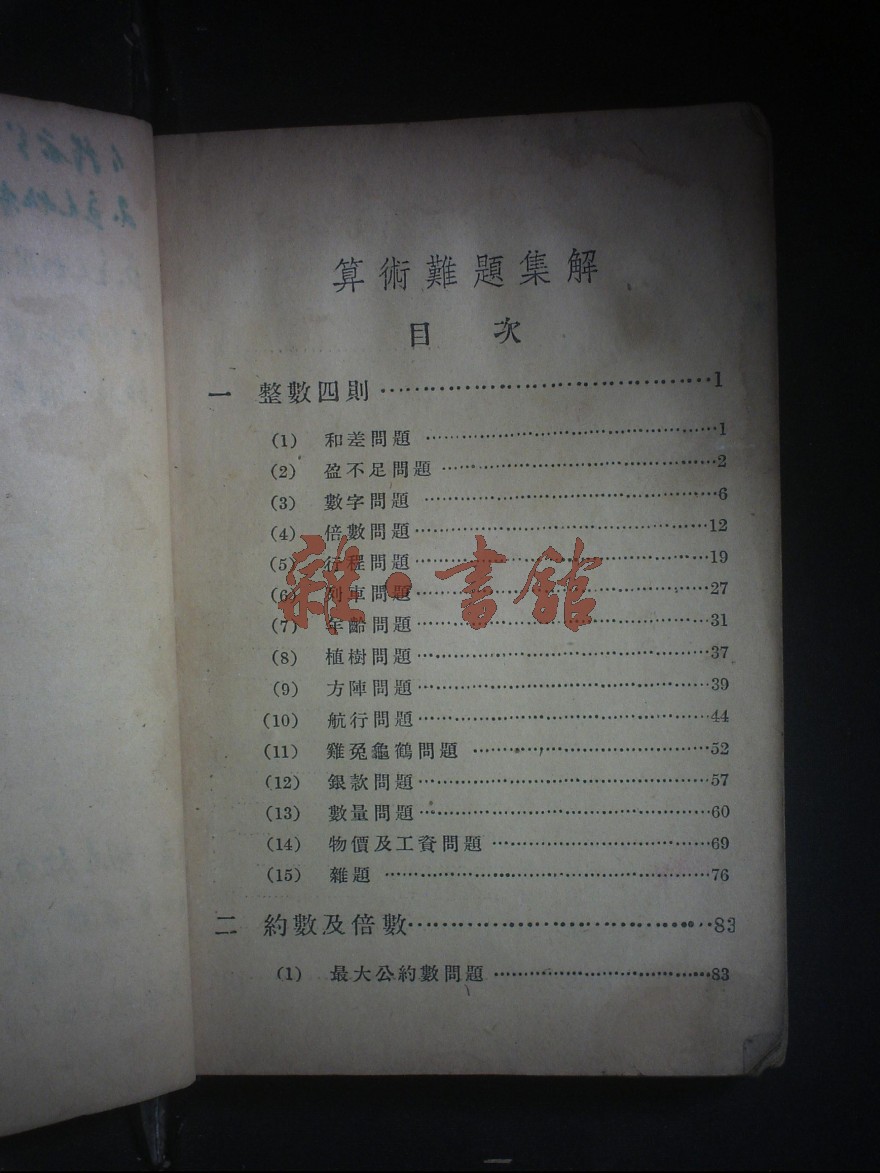 算術難題集解
目 次
一 整數四則……………………………………1
(1) 和差問題 ……………………………………1
(2) 盈不足問題 ……………………………………2
(3) 數字問題 ……………………………………6
(4) 倍數問題……………………………………12
(5) 行程問題……………………………………19
(6) 列車問題……………………………………27
(7) 年齡問題……………………………………31
(8) 植樹問題……………………………………37
(9) 方陣問題……………………………………39
(10) 航行問題……………………………………44
(11) 雞兔龜鶴問題 ……………………………………52
(12) 銀款問題……………………………………57
(13) 數量問題……………………………………60
(14) 物價及工資問題 ……………………………………69
(15) 雜題 ……………………………………76
二 約數及倍數……………………………………83
(1) 最大公約數問題 ……………………………………83
雜·書館